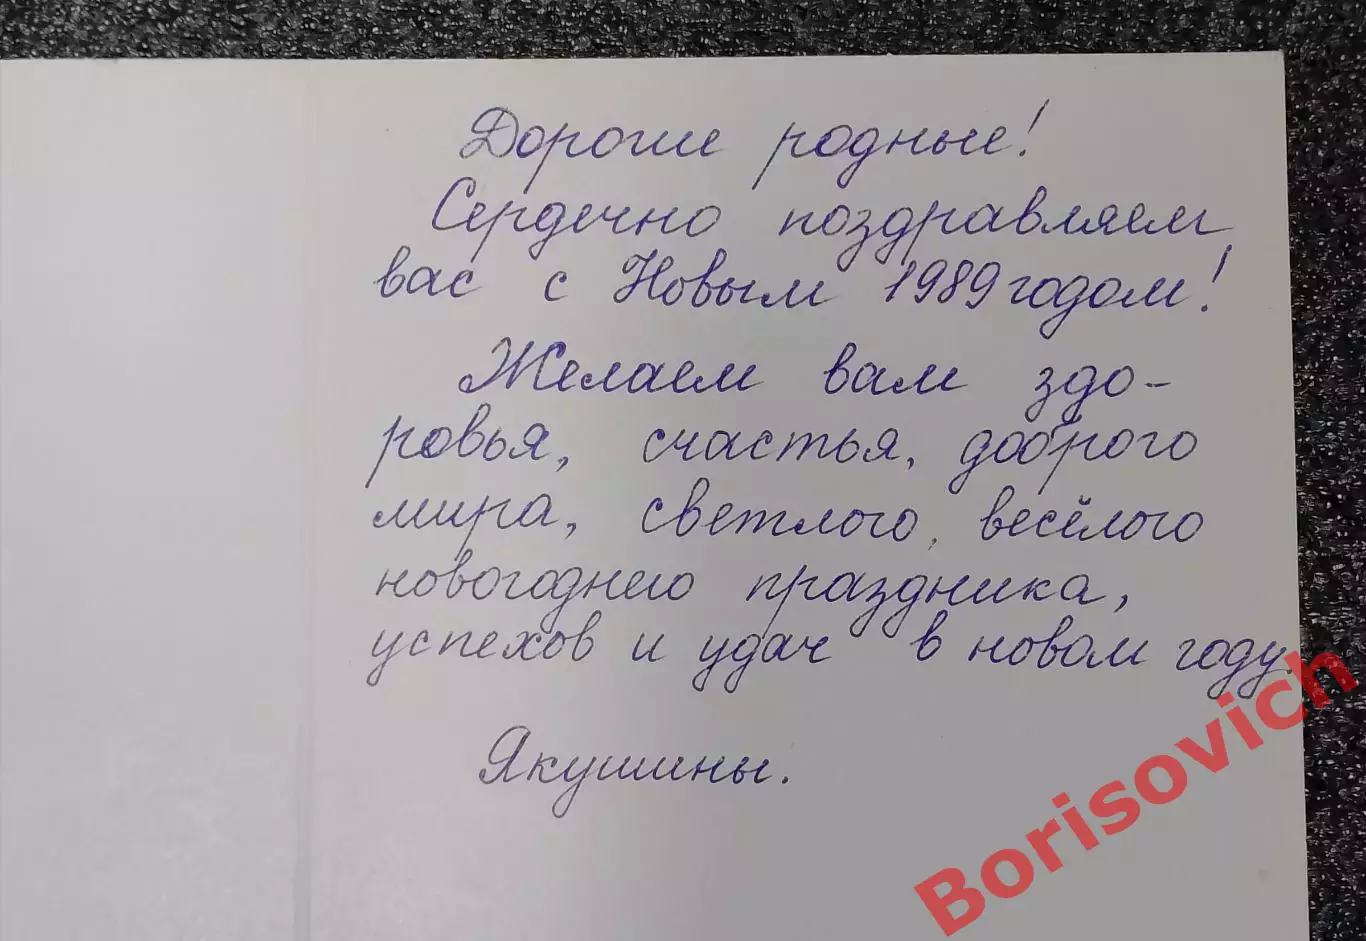 Дорогие родные!
Сердечно поздравляем
вас с Новым 1989 годом!
Желаем вам здо-
ровья, счастья, доброго
мира, светлого, весёлого
новогоднего праздника,
успехов и удач в новом году.
Якушины.
Borisovich